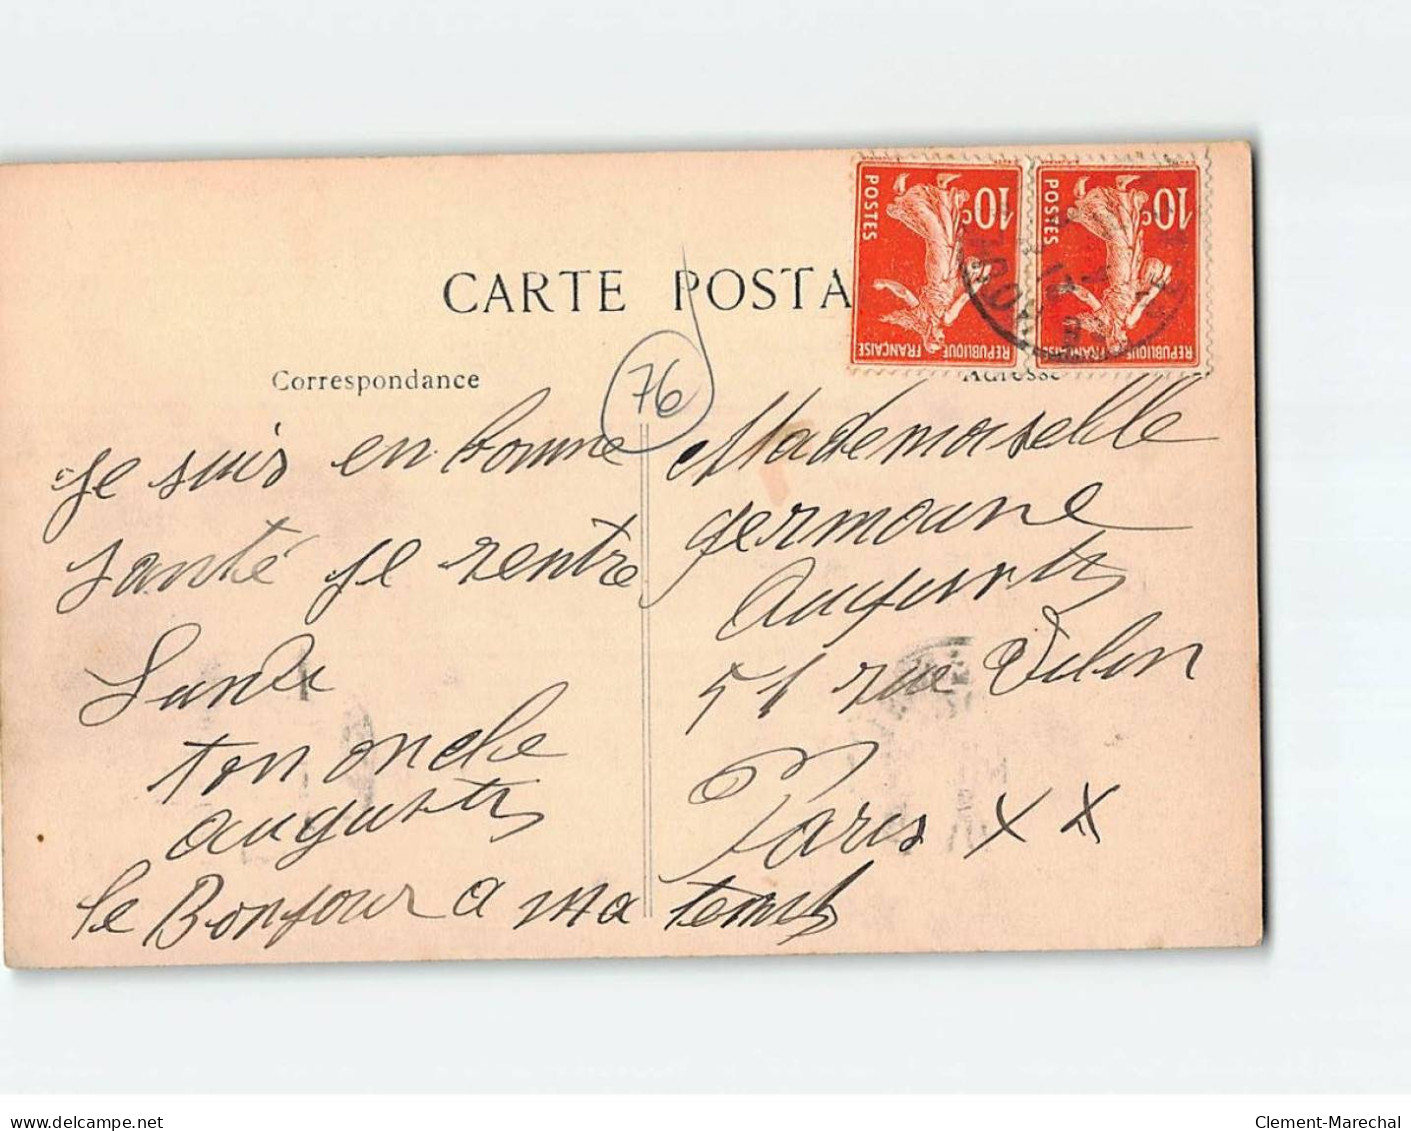 CARTE POSTA
Correspondance
76
je suis en bonne
santé je rentre
Lundi
ton oncle
auguste
le Bonjour a ma tente
Mademoiselle
germaine
Auguste
51 rue
Paris XX
10c
POSTES
REPUBLIQUE FRANÇAISE
10c
POSTES
REPUBLIQUE FRANÇAISE
www.delcampe.net
Clement-Marechal